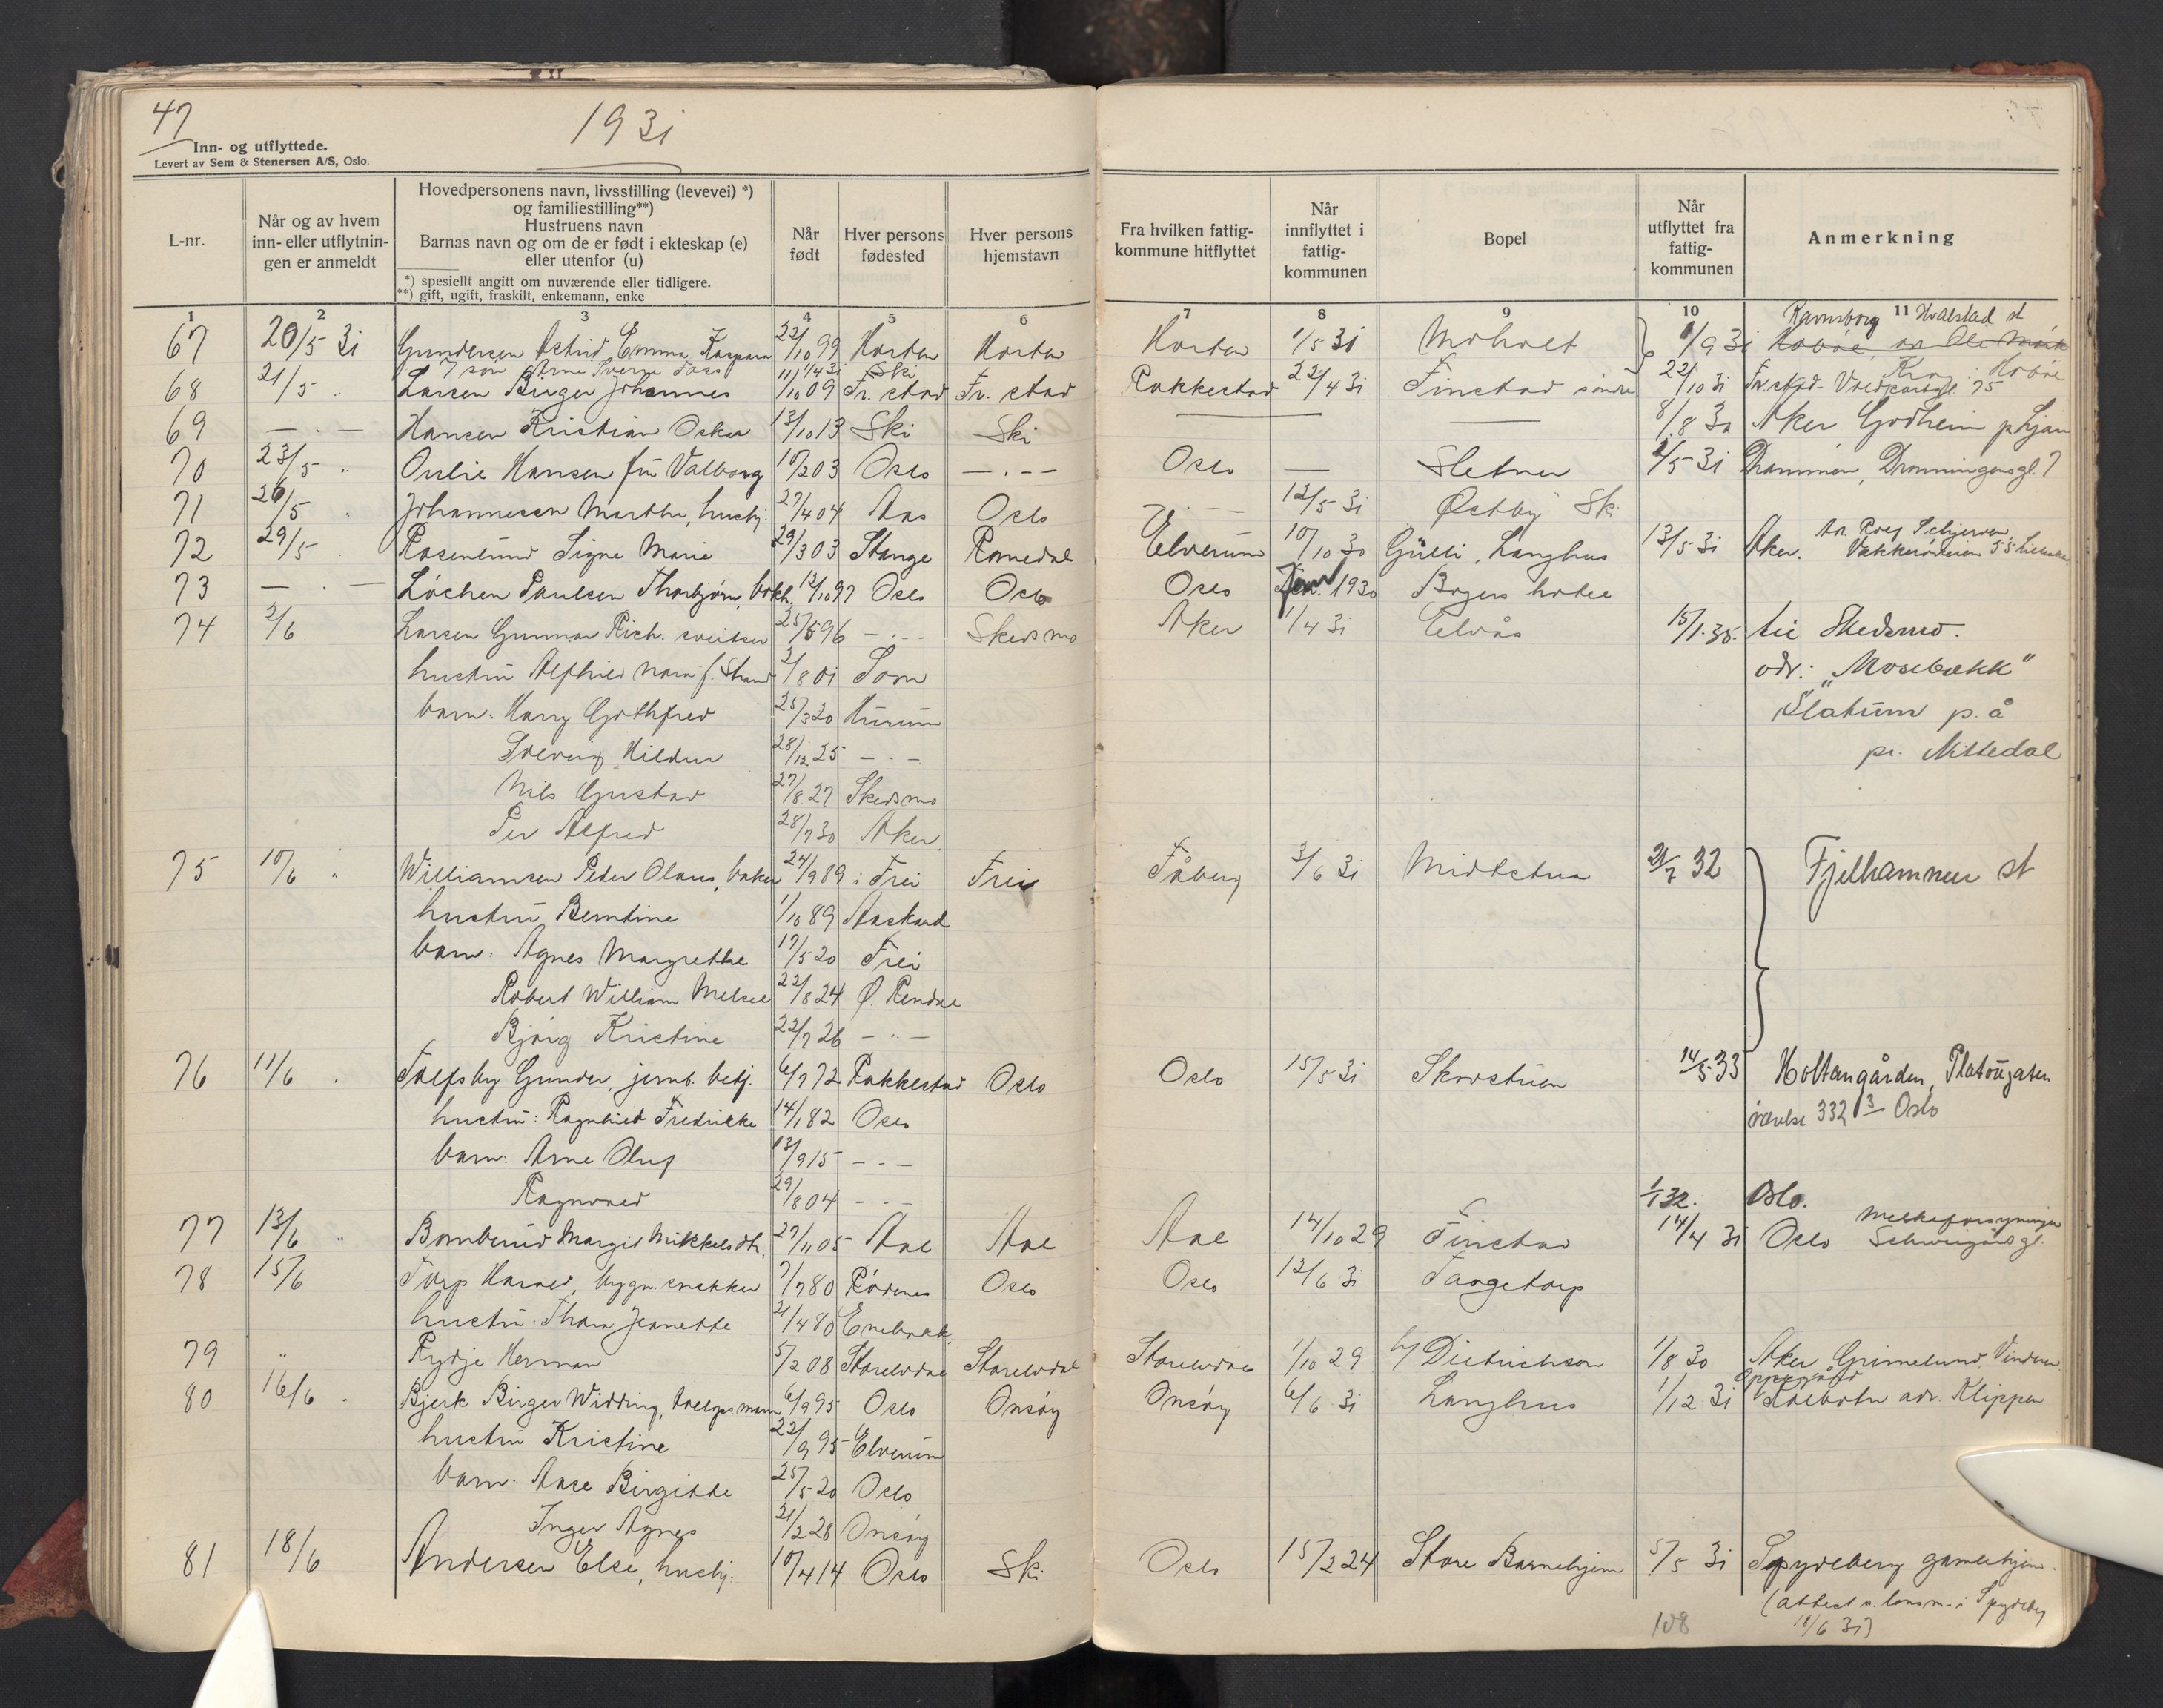 47
1931
Inn- og utflyttede.
Levert av Sem & Stenersen A/S, Oslo.
L-nr.
Når og av hvem inn- eller utflytnin- gen er anmeldt
Hovedpersonens navn, livsstilling (levevei) *)
og familiestilling**)
Hustruens navn
Barnas navn og om de er født i ekteskap (e)
eller utenfor (u)
*) spesiellt angitt om nuværende eller tidligere.
**) gift, ugift, fraskilt, enkemann, enke
Når født
Hver persons fødested
Hver persons hjemstavn
Fra hvilken fattig- kommune hitflyttet
Når innflyttet i fattig- kommunen
Bopel
Når utflyttet fra fattig- kommunen
Anmerkning
1 2 3 4 5 6 7 8 9 10 11
Ravnsborg Hvalstad st
67 20/5 31 Gundersen Astrid Emma Kaspara 22/10 99 Horten Horten Horten 1/5 31 Moholt 1/9 31
søn Arne Sverre 11/4 31 Ski Hobøe
68 21/5 " Larsen Birger Johannes 1/10 09 Fr. stad Fr. stad Rakkestad 22/4 31 Finstad søndre 22/10 31 Fr. stad 75
69 — " — Hansen Kristian Oskar 13/10 13 Ski Ski — — 8/8 30 Aker Godheim p Ljan
70 23/5 " Oulie Hansen fru Valborg 10/2 03 Oslo — " — Oslo — Sletner 1/5 31 Drammen, Dronningensgt. 7
71 26/5 " Johannesen Marthe, hushj. 27/4 04 Aas Oslo — " — 12/5 31 Østby Ski
72 29/5 " Rosenlund Signe Marie 29/3 03 Stange Romedal Elverum 10/10 30 Gulli, Langhus 13/5 31 Aker. Vækkerøveien 55
73 — " — Løchen Paulsen Thorbjørn, bokh. 12/10 97 Oslo Oslo Oslo Jan 1930 Bøgers hotel
74 2/6 Larsen Gunnar Rich. sveitser 25/5 96 — " — Skedsmo Aker 1/4 31 Elvås 15/1.35. til Skedsmo.
hustru Alfhild Nora f. Strand 2/8 01 Son adr: "Mosebækk"
barn: Harry Gothfred 25/3 20 Hurum Slatum p. å
Solveig Hildur 28/12 25 — " — pr. Nittedal
Nils Gustav 27/8 27 Skedsmo
Per Alfred 28/7 30 Aker.
75 10/6 " Williamsen Peder Olaus, baker 24/9 89 i Frei Frei Fåberg 3/6 31 Midtstua 21/7 32 Fjelhammer st
hustru Berntine 1/10 89 Aaskard
barn: Agnes Margrethe 17/5 20 Frei
Robert William 22/8 24 Ø. Rendal
Bjørg Kristine 22/7 26 — " —
76 11/6 " Tolfsby Gunder, jernb. betj. 6/7 72 Rakkestad Oslo Oslo 15/5 31 Skovstuen 14/5 33 Holtangården, Platougaten
hustru: Ragnhild Fredrikke 14/1 82 Oslo værelse 332 Oslo
barn: Arne Oluf 13/9 15 — " —
Ragnvald 29/8 04 — " — 1/1 32. Oslo.
77 13/6 " Bomberud Margit Mikkelsdtr. 27/11 05 Aal Aal Aal 14/10 29 Finstad 14/4 31 Oslo Melkeforsyningen Schweigårdsgt.
78 15/6 Torp Harald, bygn. snekker 7/7 80 Rødenes Oslo Oslo 12/6 31 Taagetorp
hustru: Thora Jeanette 21/4 80 Enebakk.
79 " Rydje Herman 5/2 08 Storelvdal Storelvdal Storelvdal 1/10 29 h/ Dietrichson 1/8 30 Aker Grimelund, Vinderen.
80 16/6 " Bjerk Birger Widding, 6/9 95 Oslo Onsøy Onsøy 6/6 31 Langhus 1/12 31 Oppegård Kolbotn adr. Klippen
hustru Kristine 22/9 95 Elverum
barn: Aase Birgitte 25/5 20 Oslo
Inger Agnes 21/2 28 Onsøy
81 18/6 Andersen Else, hushj. 10/4 14 Oslo Ski Oslo 15/2 24 Store Barnehjem 5/5 31 Spydeberg gamlehjem.
(Attest s. lensm. i Spydeberg
18/6 31)
108